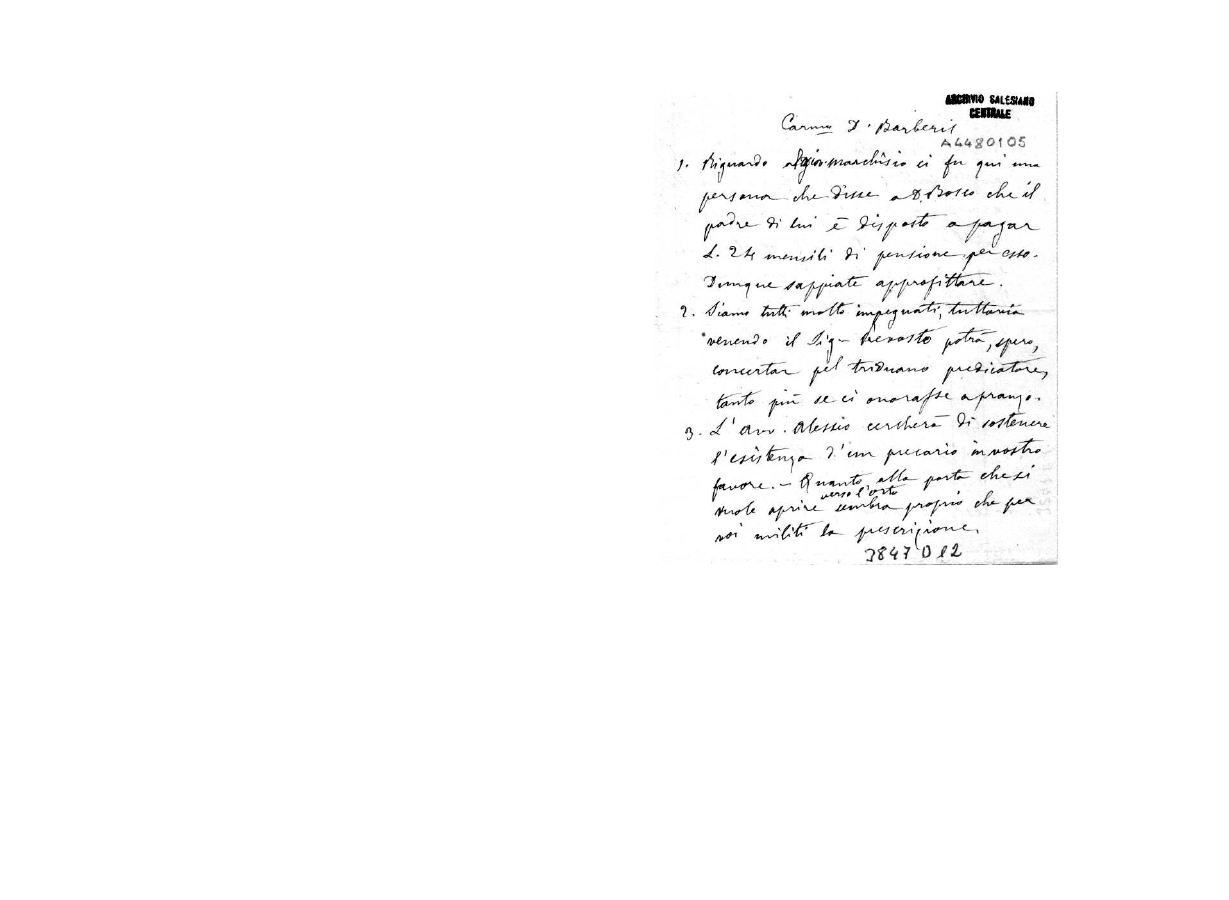 ARCHIVIO SALESIANO
CENTRALE
Carmo D. Barberis
A4480105
1. Riguardo al giov. Marchisio ci fu qui una
persona che disse a D. Bosco che il
padre di lui è disposto a pagar
L. 24 mensili di pensione per esso.
Dunque sappiate approfittare.
2. Siamo tutti molto impegnati, tuttavia
venendo il Sig. Prevosto potrà, spero,
concertar pel triduano predicatore,
tanto più se ci onorasse a pranzo.
3. L'Avv. Alessio cercherà di sostenere
l'esistenza d'un precario in vostro
favore. – Quanto alla porta che si
verso l'orto
vuole aprire sembra proprio che per
voi militi la prescrizione.
3847 D12